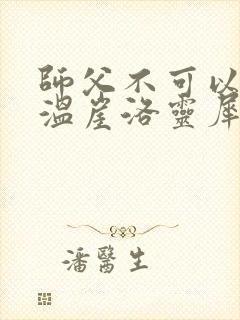 師父不可以
溫崖洛靈犀
潘醫生